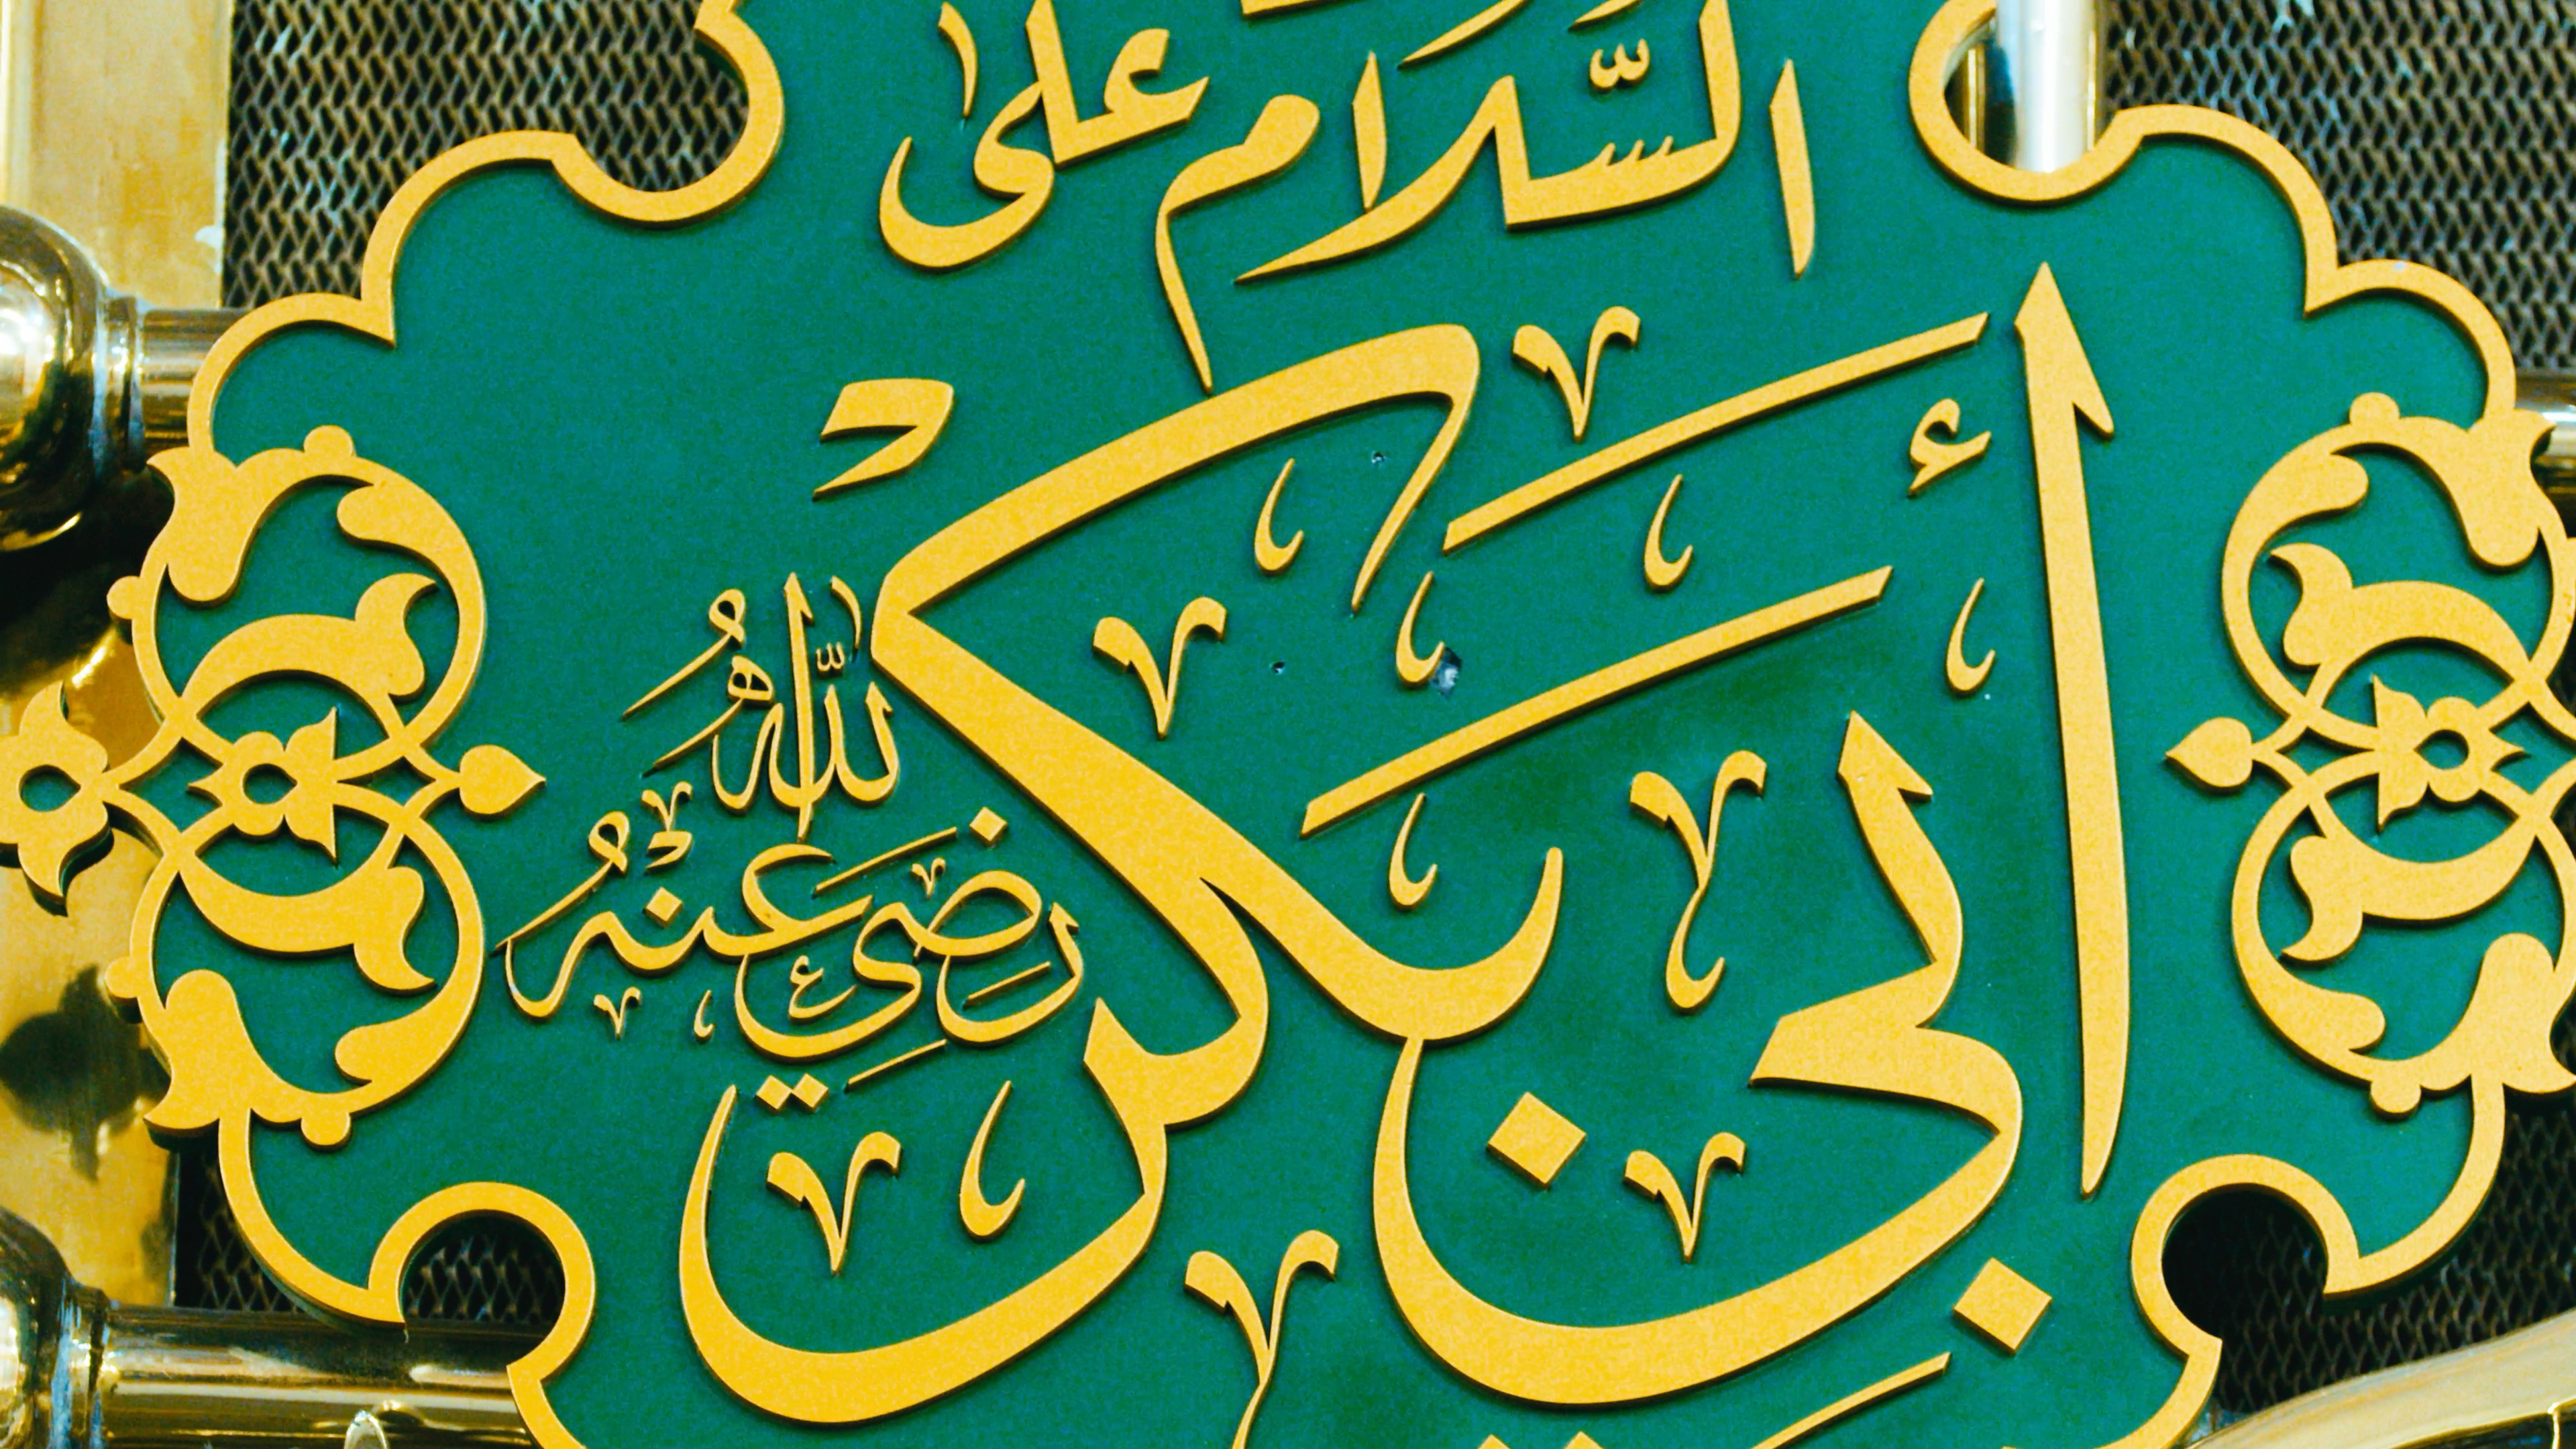 السَّلَام على
أَبِي بَكْرٍ
رَضِيَ اللهُ عَنْهُ